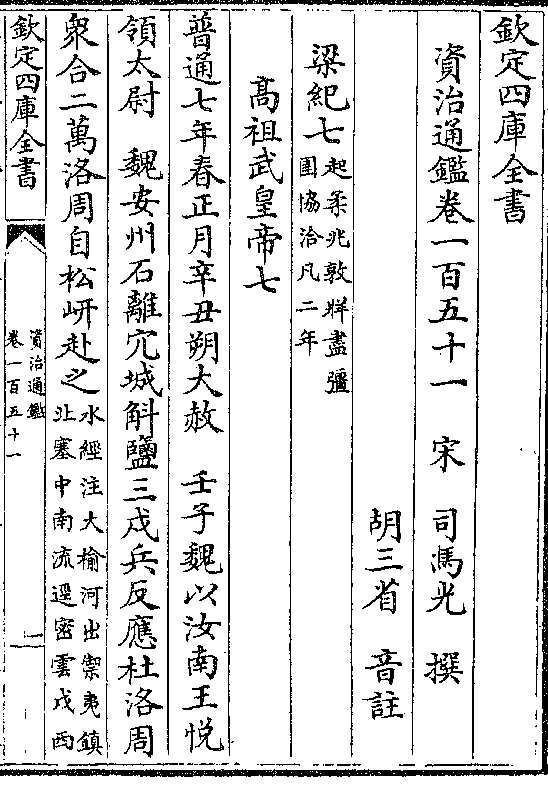 欽定四庫全書
資治通鑑卷一百五十一 宋 司馬光 撰
胡三省 音註
梁紀七起柔兆敦牂盡彊
圉協洽凡二年
高祖武皇帝七
普通七年春正月辛丑朔大赦 壬子魏以汝南王悦
領太尉 魏安州石離穴城斛鹽三戍兵反應杜洛周
衆合二萬洛周自松岍赴之水經注大榆河出禦夷鎮
北塞中南流逕密雲戍西
欽定四庫全書
資治通鑑
卷一百五十一
一